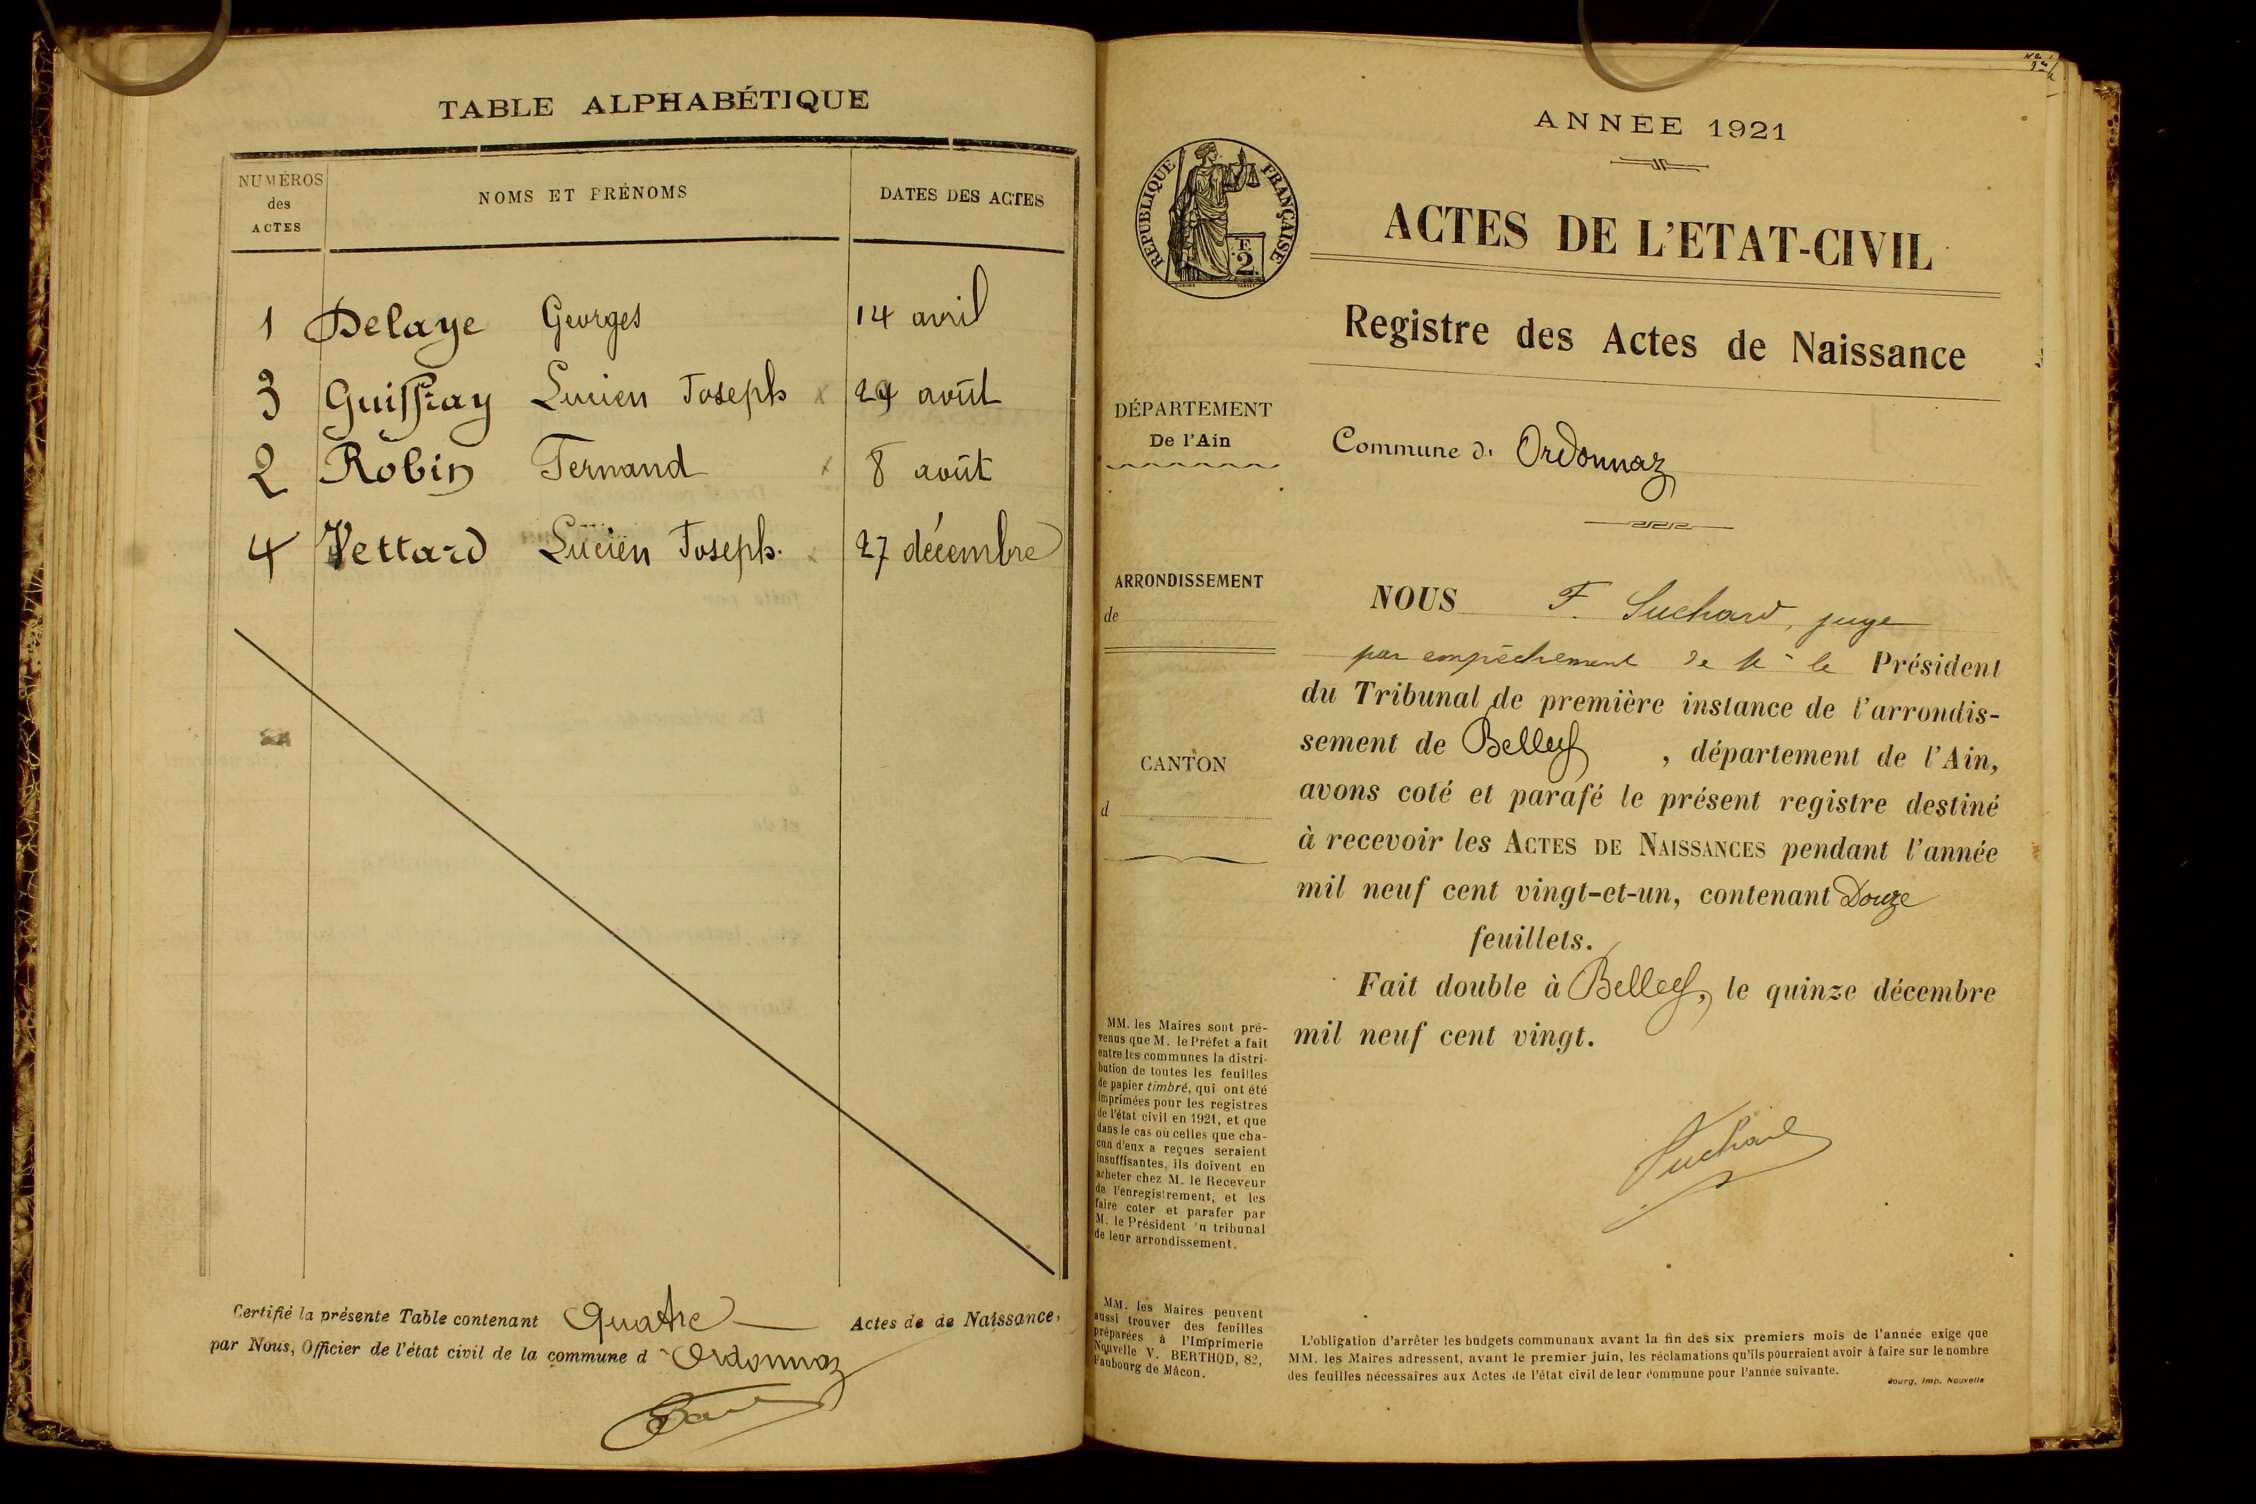 TABLE ALPHABÉTIQUE
NUMÉROS
des
ACTES
NOMS ET PRÉNOMS
DATES DES ACTES
1 Delaye Georges 14 avril
3 Guiffray Lucien Joseph x 29 août
2 Robin Fernand x 8 août
4 Vettard Lucien Joseph. x 27 décembre
Certifié la présente Table contenant Quatre Actes de de Naissance,
par Nous, Officier de l'état civil de la commune d Ordonnaz
ANNÉE 1921
RÉPUBLIQUE FRANÇAISE
F.
2
ACTES DE L'ETAT-CIVIL
Registre des Actes de Naissance
DÉPARTEMENT
De l'Ain
Commune d' Ordonnaz
ARRONDISSEMENT
de
CANTON
d
NOUS F. Suchard, juge
par empêchement de Mr le Président
du Tribunal de première instance de l'arrondis-
sement de Belley , département de l'Ain,
avons coté et parafé le présent registre destiné
à recevoir les ACTES DE NAISSANCES pendant l'année
mil neuf cent vingt-et-un, contenant Douze
feuillets.
Fait double à Belley, le quinze décembre
mil neuf cent vingt.
Suchard
MM. les Maires sont pré-
venus que M. le Préfet a fait
entre les communes la distri-
bution de toutes les feuilles
de papier timbré, qui ont été
imprimées pour les registres
de l'état civil en 1921, et que
dans le cas où celles que cha-
cun d'eux a reçues seraient
insuffisantes, ils doivent en
acheter chez M. le Receveur
de l'enregistrement, et les
faire coter et parafer par
M. le Président 'u tribunal
de leur arrondissement.
MM. les Maires peuvent
aussi trouver des feuilles
préparées à l'Imprimerie
Nouvelle V. BERTHOD, 82,
Faubourg de Mâcon.
L'obligation d'arrêter les budgets communaux avant la fin des six premiers mois de l'année exige que
MM. les Maires adressent, avant le premier juin, les réclamations qu'ils pourraient avoir à faire sur le nombre
des feuilles nécessaires aux Actes de l'état civil de leur commune pour l'année suivante.
Bourg, Imp. Nouvelle